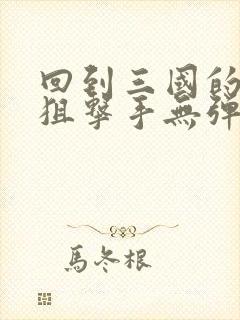 回到三國的
狙擊手無彈
馬冬根